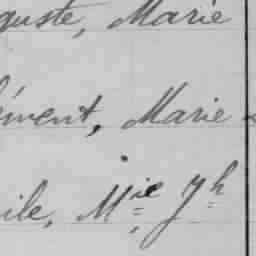 guste, Marie
ément, Marie
ile, Mie Jh